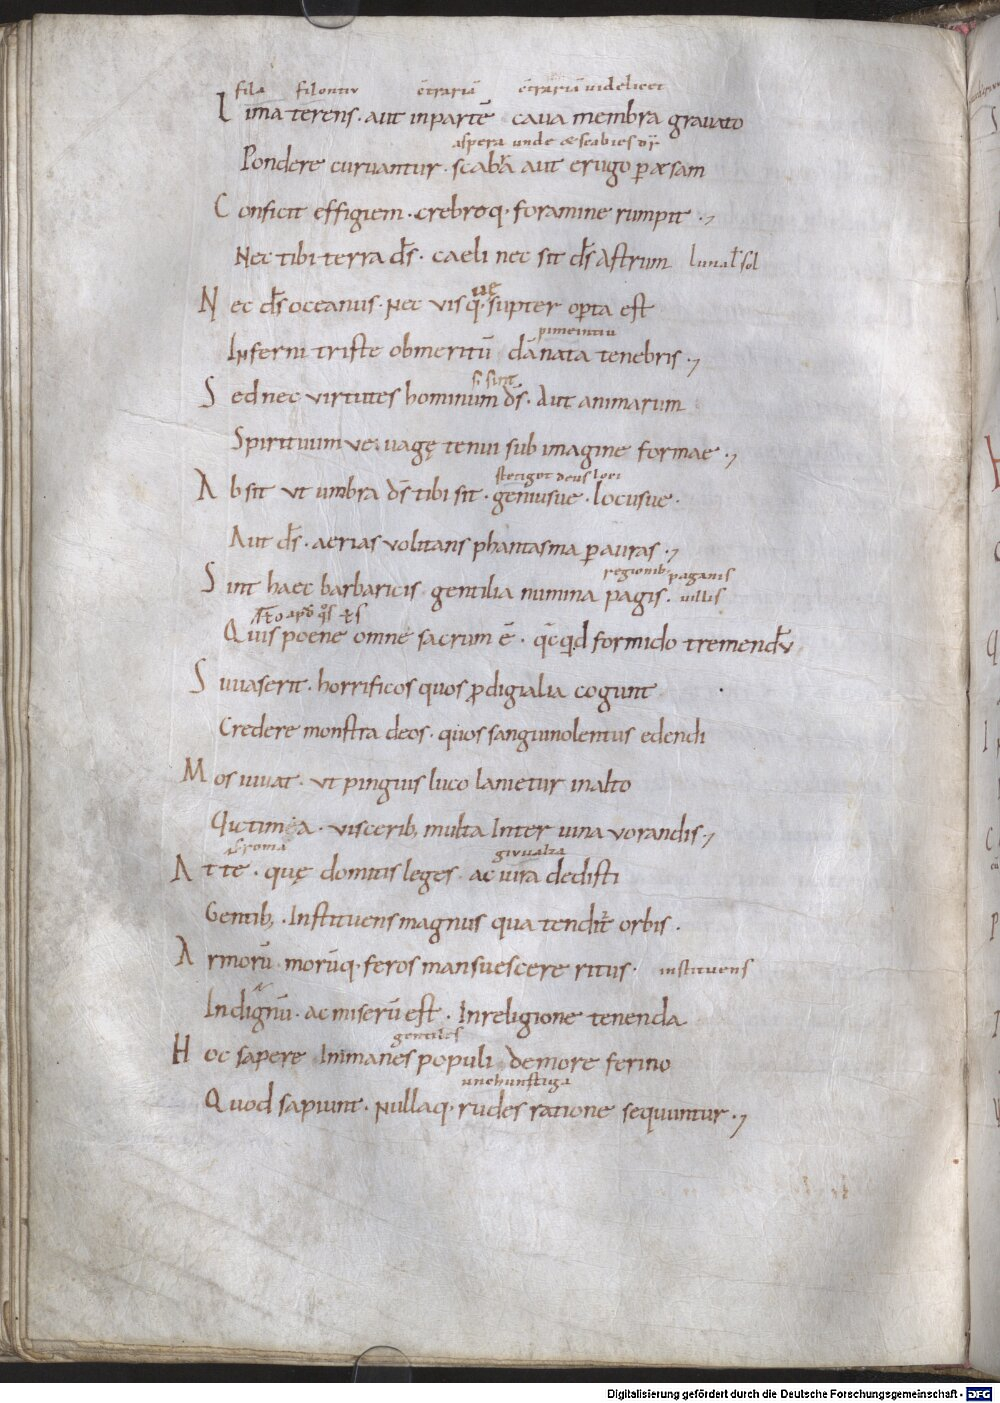 fila filontiv c̄traria c̄trariū uidelicet
Lima terens · aut inpartē caua membra grauato
aspera unde & scabies dr̄
Pondere curuantur · scabra aut erugo p&sam
Conficit effigiem · crebroq· foramine rumpit ·,
Nec tibi terra ds̄ · caeli nec sit ds̄ Astrum luna ł sol
ue
Nec ds̄ oceanus · Nec visq· supter opta est
pimeintiu
Inferni triste obmeritū dānata tenebris ·,
si sint
Sed nec virtutes hominum ds̄ · Aut animarum
Spirituum ve uagę tenui sub imagine formae ·,
stetigot deus loci
Absit ut umbra ds̄ tibi sit · geniusue · locusue ·
Aut ds̄ · aerias volitans phantasma p auras ·,
regionib; paganis
Sint haec barbaricis gentilia numina pagis · uillis
Quis poene omne sacrum ē · qcqd formido tremendū
Suuaserit · horrificos quos pdigialia cogunt
Credere monstra deos · quos sanguinolentus edendi
Mos iuuat · ut pinguis luco lanietur inalto
Uictima · visceribus multa Inter uina vorandis ·,
ł roma giuualta
At te · quę domitis leges ac iura dedisti
Gentib; · Instituens magnus qua tendit orbis ·
Armorū morūq· feros mansuescere ritus · instituens
Indignū · ac miserū est · Inreligione tenenda
gentiles
Hoc sapere Inmanes populi demore ferino
unchunstiga
Quod sapiunt · Nullaq· rudes ratione sequuntur ·,
Digitalisierung gefördert durch die Deutsche Forschungsgemeinschaft - DFG